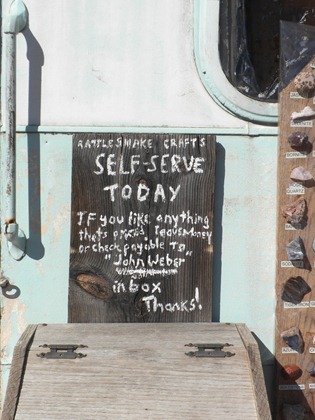 RATTLESNAKE CRAFTS
SELF-SERVE
TODAY
IF you like anything
thats priced, leave money
or check payable TO
"John Weber"
in box
Thanks!
QUARTZ